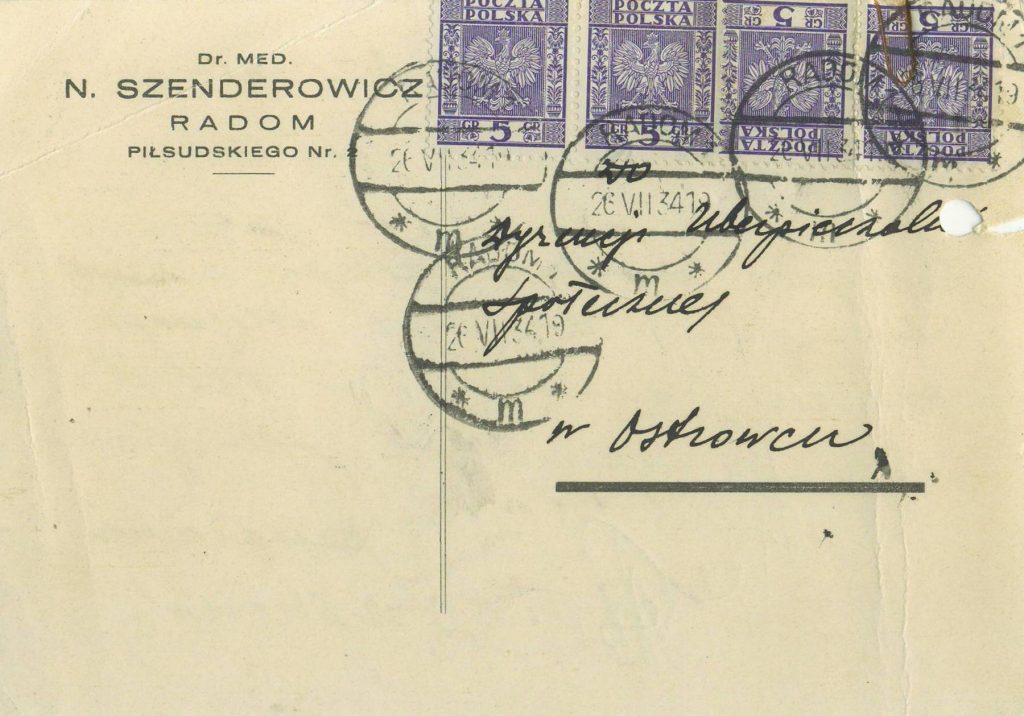 Dr. MED.
N. SZENDEROWICZ
RADOM
PIŁSUDSKIEGO Nr.
POCZTA POLSKA
5 GR
POCZTA POLSKA
GR 5 GR
5 GR
POCZTA POLSKA
5
POCZTA POLSKA
RADOM
26 VII 34 19
m
RADOM
26 VII 34 19
m
RADOM
26 VII 34
m
VII 34 19
m
RADOM
26 VII 34 19
m
Do
Dyrekcji Ubezpieczalni
Społecznej
w Ostrowcu